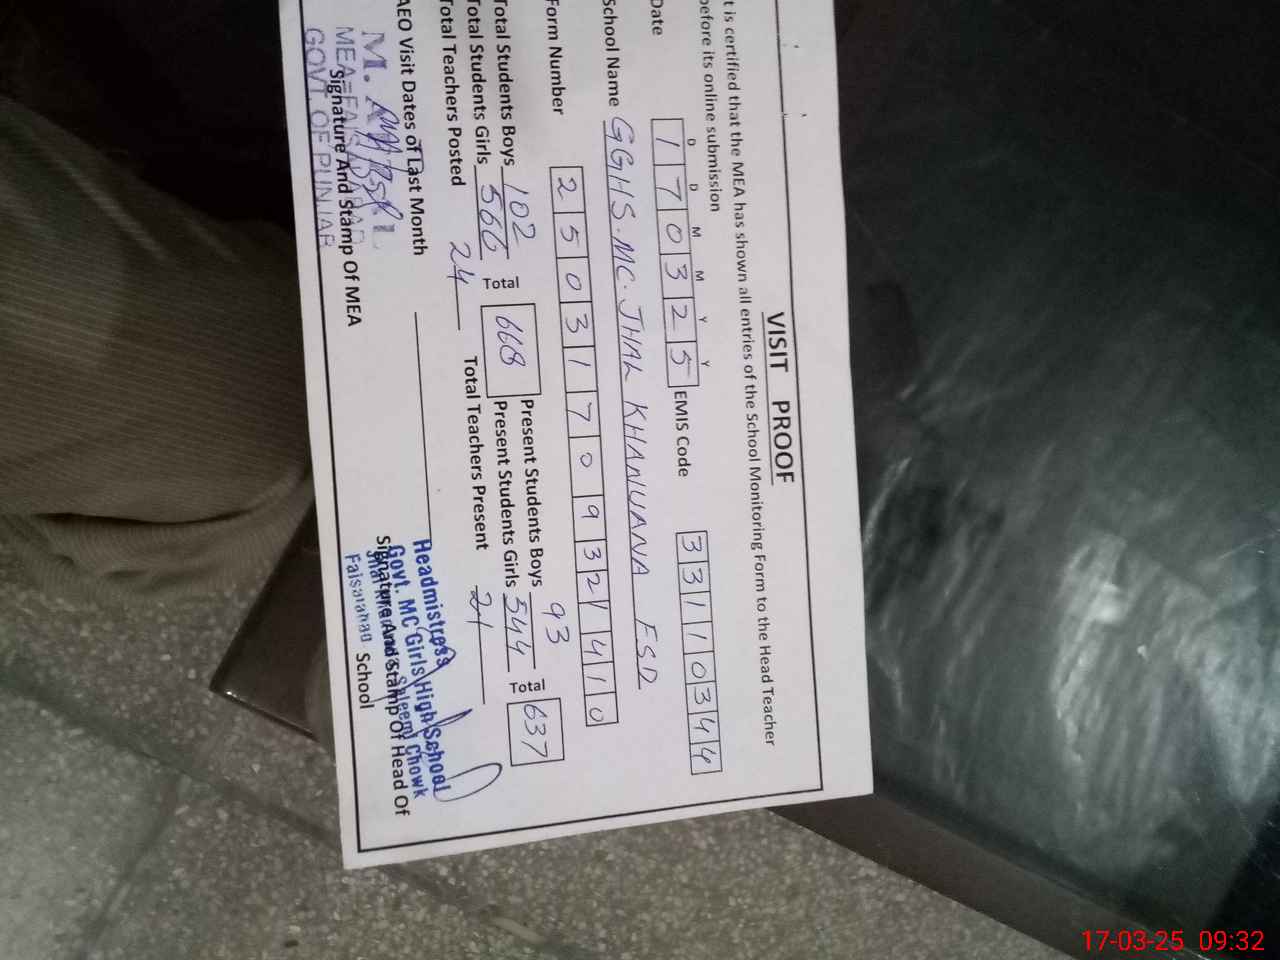 VISIT PROOF
t is certified that the MEA has shown all entries of the School Monitoring Form to the Head Teacher
before its online submission
D D M M Y Y
Date 1 7 0 3 2 5 EMIS Code 3 3 1 1 0 3 4 4
School Name GGHS.MC.JHAL KHANUANA FSD
Form Number 2 5 0 3 1 7 0 9 3 2 1 4 1 0
Total Students Boys 102 Total 668 Present Students Boys 93 Total 637
Total Students Girls 566 Present Students Girls 544
Total Teachers Posted 24 Total Teachers Present 21
AEO Visit Dates of Last Month
M.
MEA-FAISALABAD
GOVT. OF PUNJAB
Signature And Stamp Of MEA
Headmistress
Govt. MC Girls High School
Saleemi Chowk
Faisalabad
Signature And Stamp Of Head Of
School
17-03-25 09:32